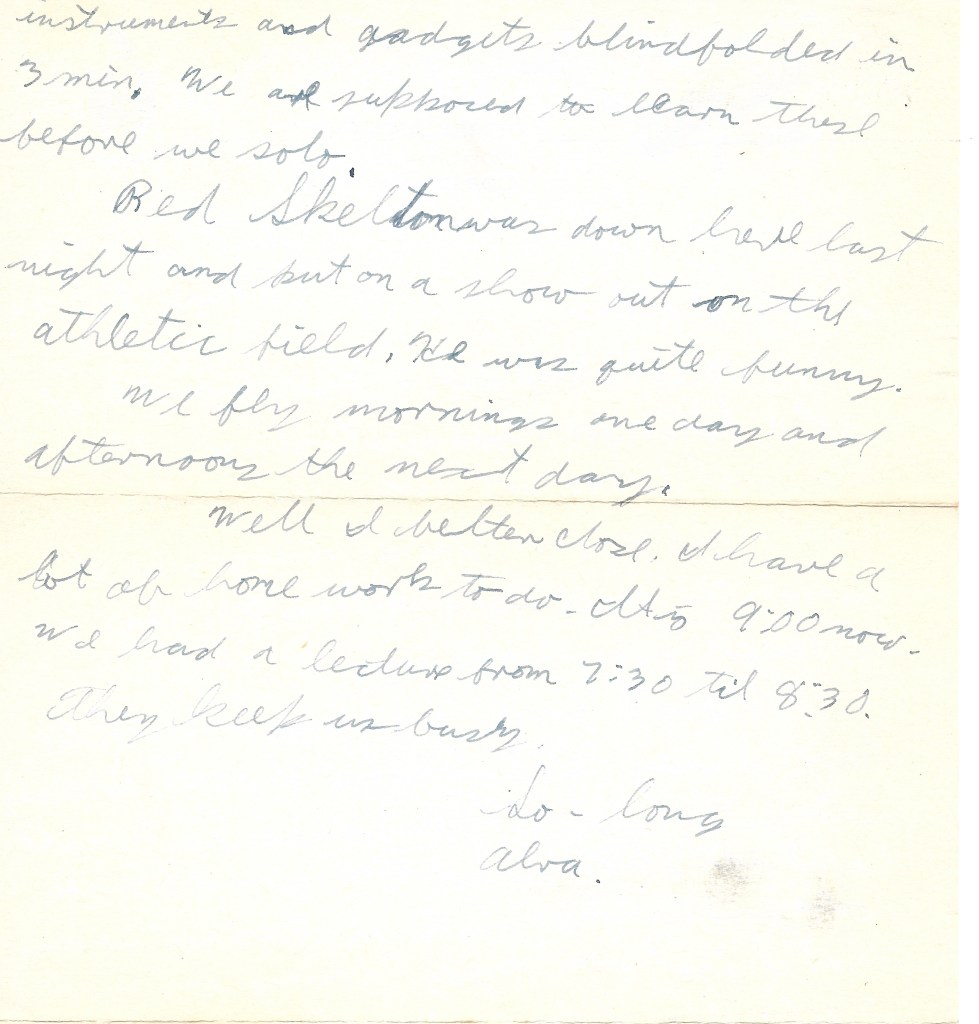 instruments and gadgets blindfolded in
3 min. We are supposed to learn these
before we solo.
Red Skelton was down here last
night and put on a show out on the
athletic field. He was quite funny.
We fly mornings one day and
afternoons the next day.
Well I better close. I have a
lot of home work to do. It is 9:00 now.
We had a lecture from 7:30 til 8:30.
They keep us busy.
So-long
Alva.